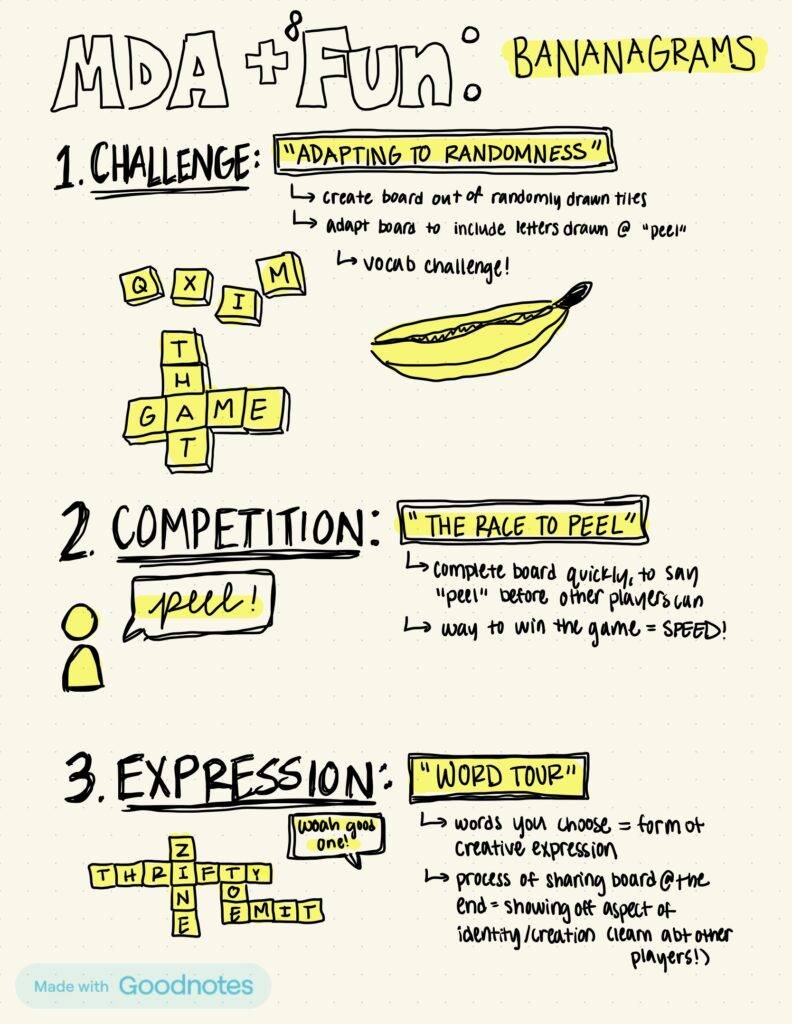 MDA + 8 Fun:
BANANAGRAMS
1. CHALLENGE:
"ADAPTING TO RANDOMNESS"
↳ create board out of randomly drawn tiles
↳ adapt board to include letters drawn @ "peel"
↳ vocab challenge!
Q X I M
T
H
G A M E
T
2. COMPETITION:
"THE RACE TO PEEL"
↳ complete board quickly, to say
"peel" before other players can
↳ way to win the game = SPEED!
peel!
3. EXPRESSION:
"WORD TOUR"
↳ words you choose = form of
creative expression
↳ process of sharing board @ the
end = showing off aspect of
identity/creation (learn abt other
players!)
woah good
one!
Z
T H R I F T Y
N O
E E M I T
Made with Goodnotes